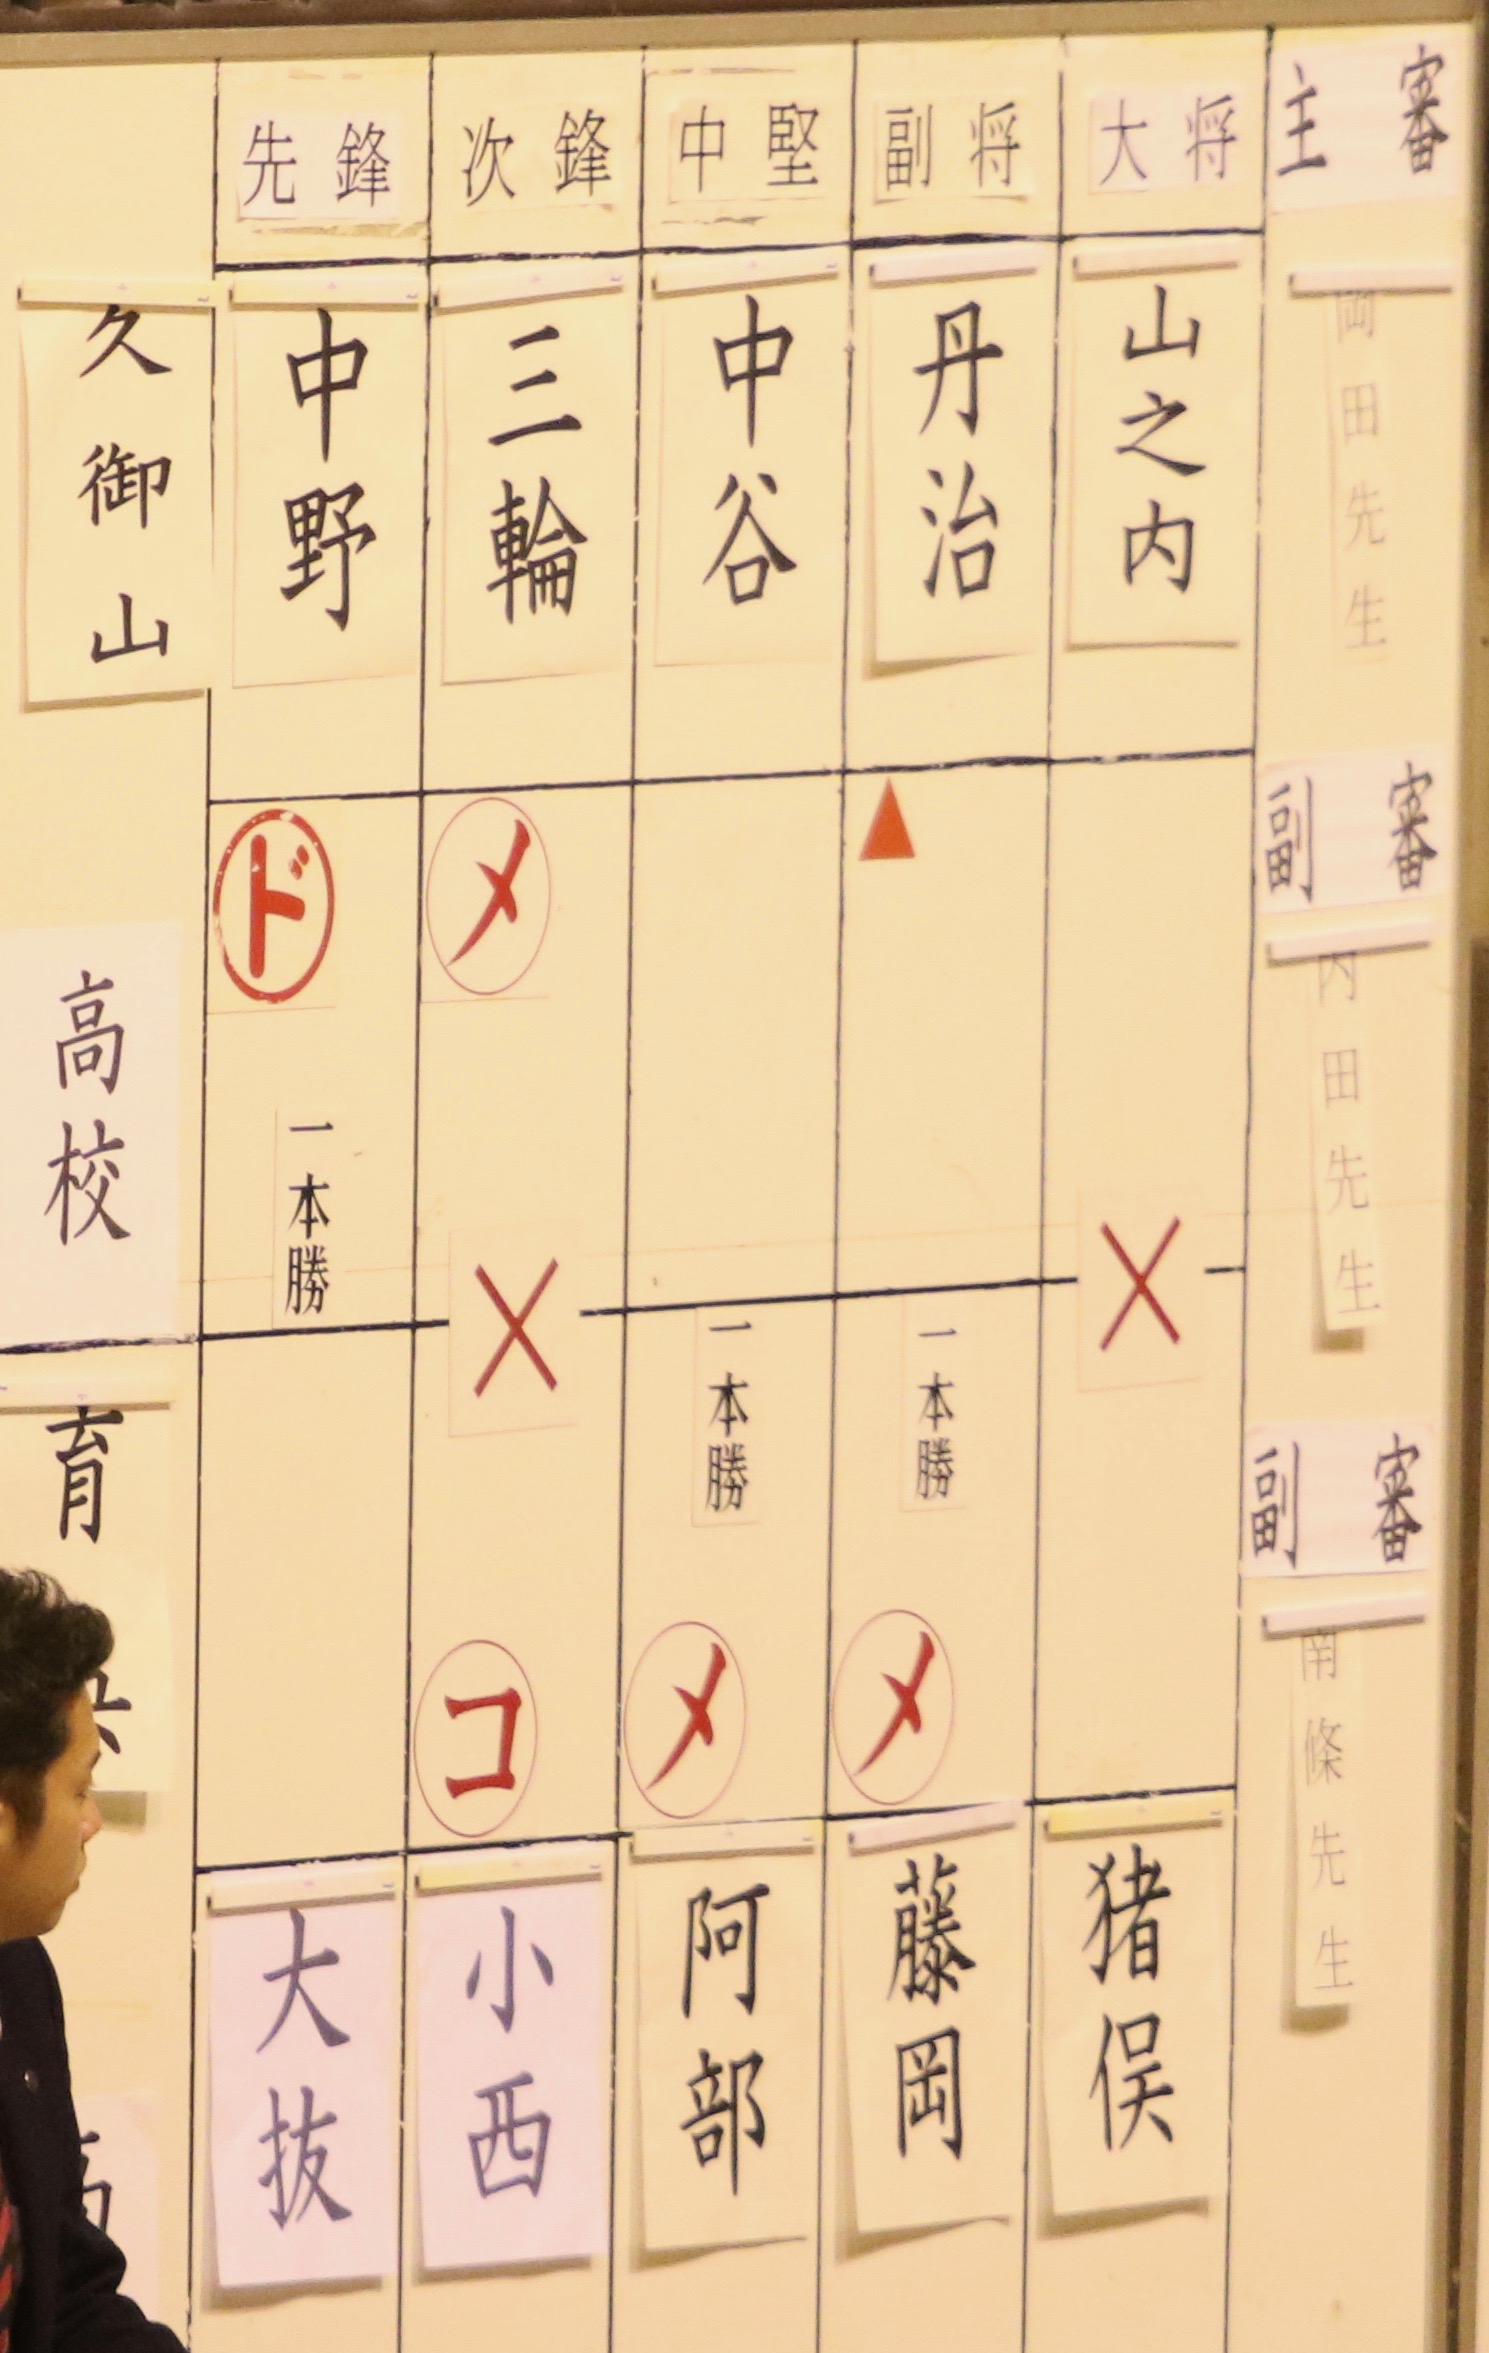 先鋒
次鋒
中堅
副将
大将
主審
久御山
高校
中野
三輪
中谷
丹治
山之内
岡田先生
ド
メ
副審
内田先生
一本勝
一本勝
一本勝
副審
南條先生
育
コ
メ
メ
大抜
小西
阿部
藤岡
猪俣